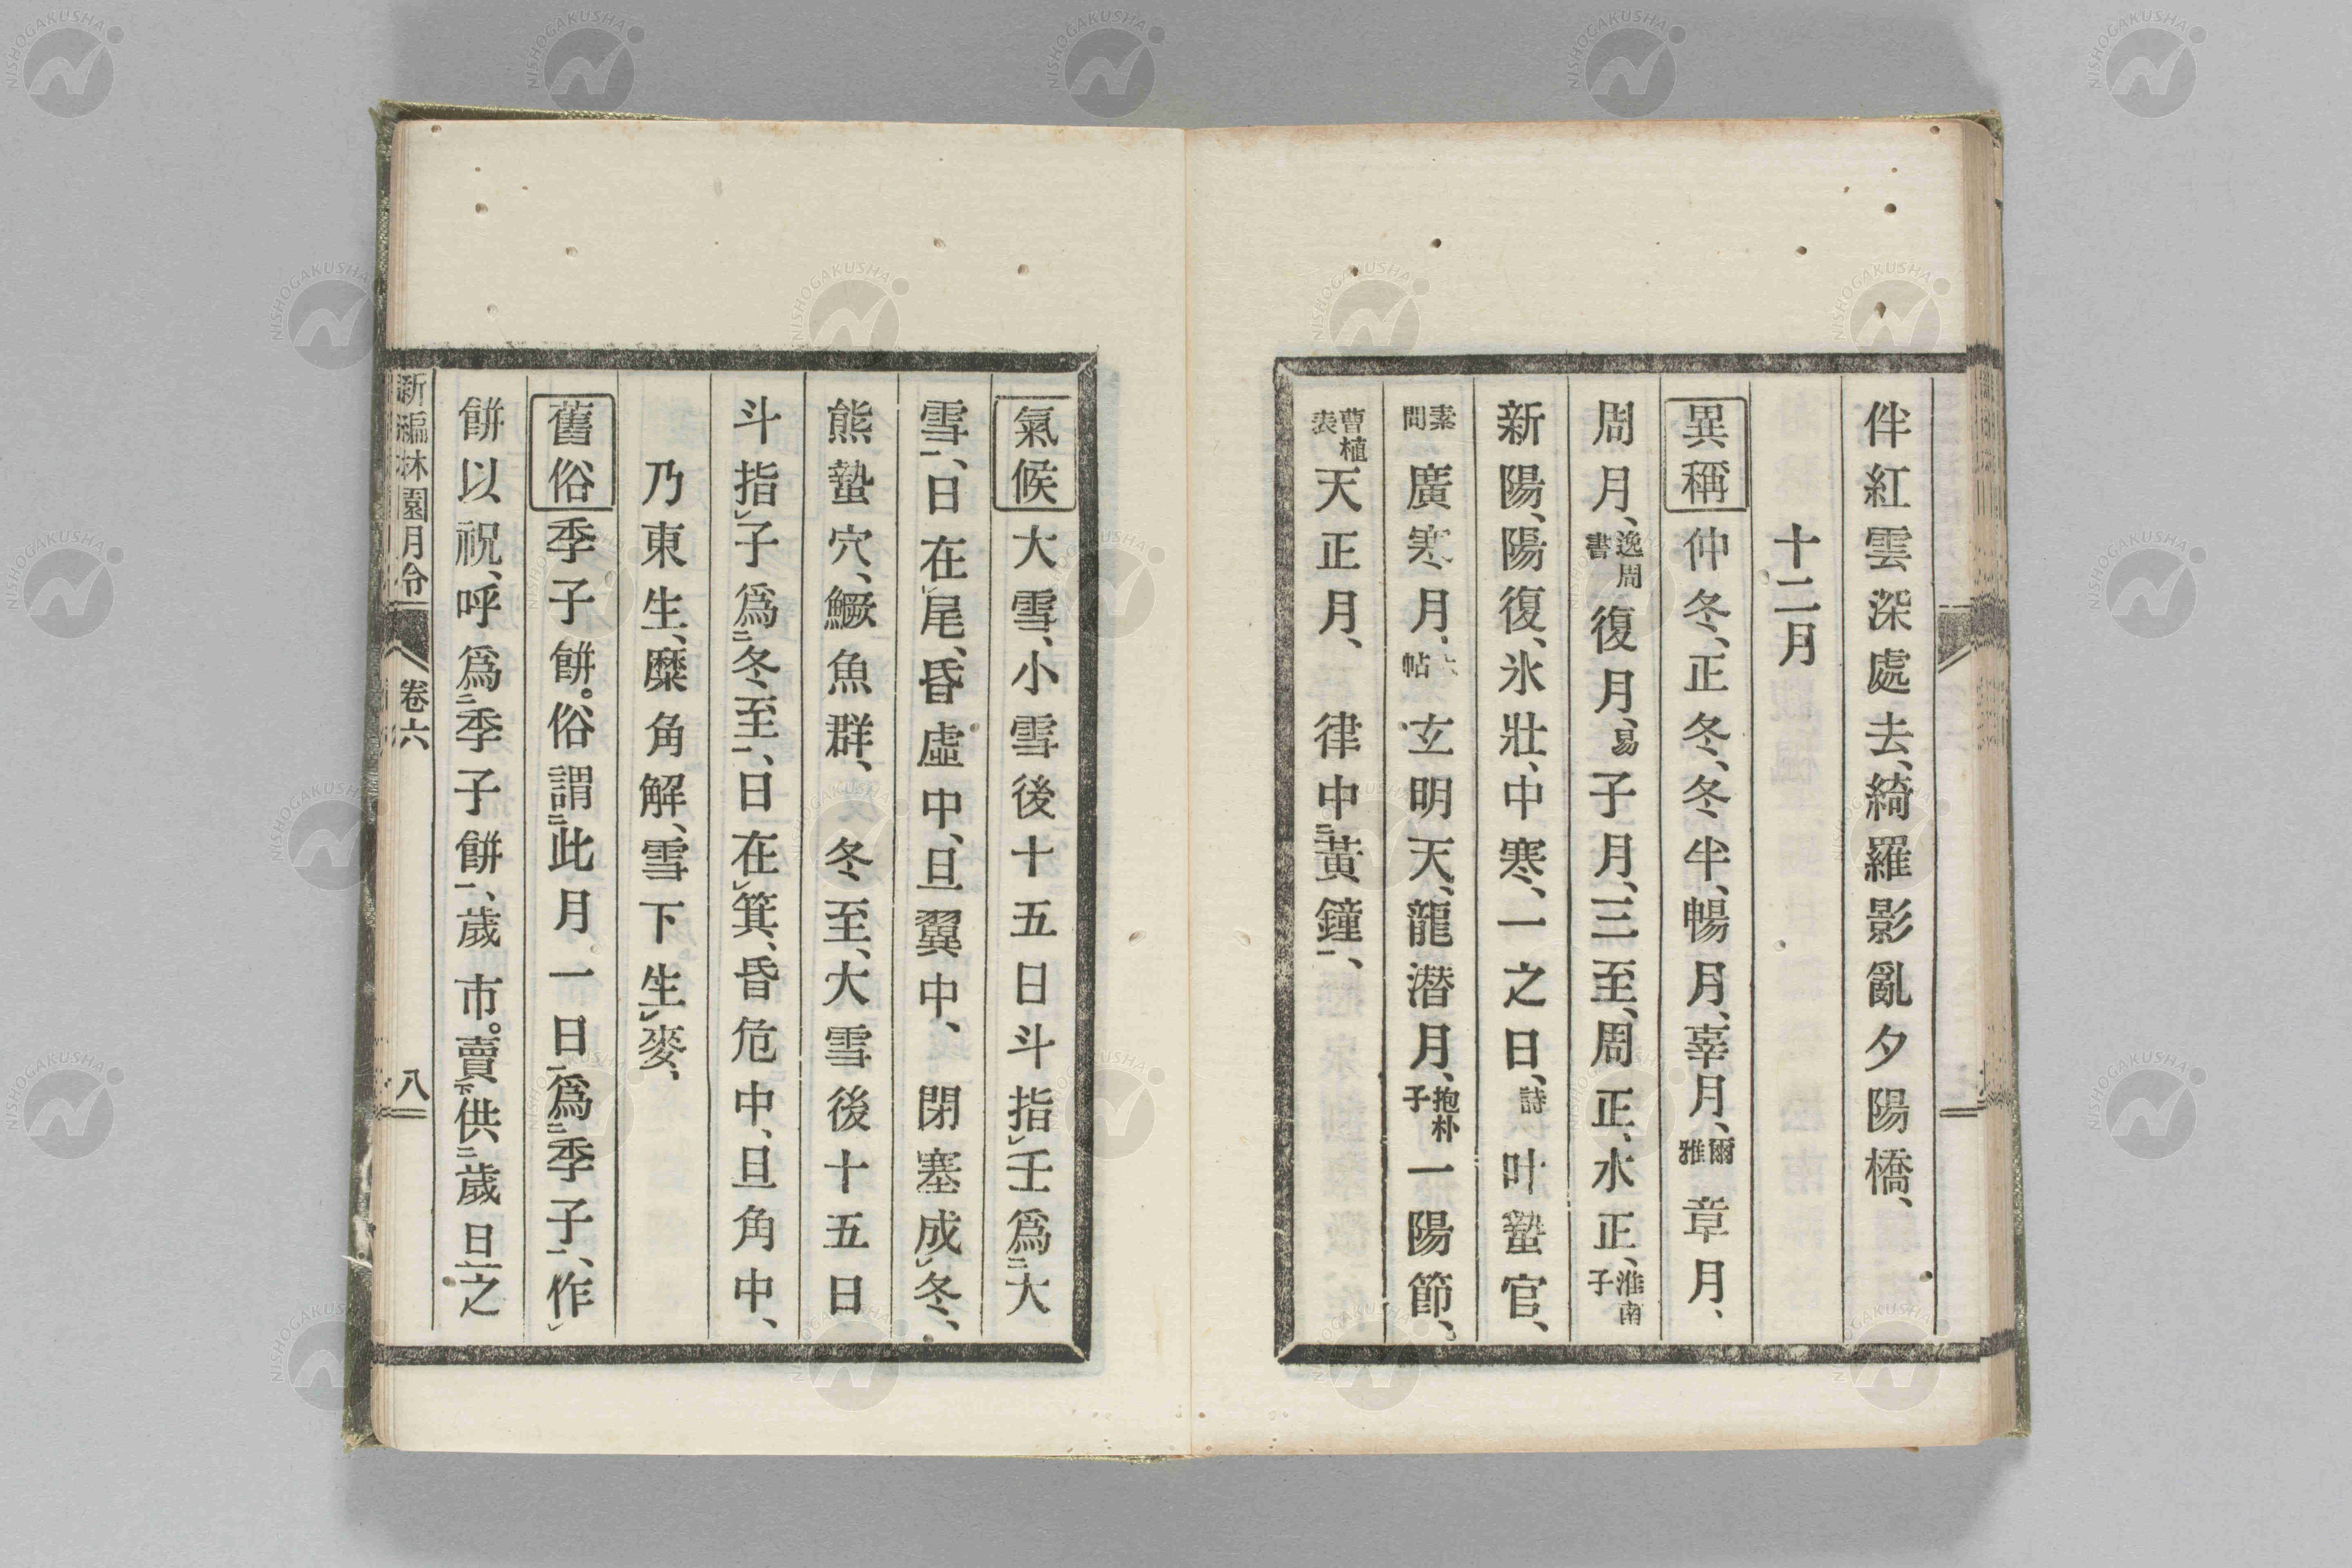 伴紅雲深處去、綺羅影亂夕陽橋、
十二月
異稱 仲冬、正冬、冬半、暢月、辜月、爾雅 章月、
周月、逸周書 復月、易 子月、三至、周正、水正、淮南子
新陽、陽復、氷壯、中寒、一之日、詩 叶蟄官、
素問 廣寒月、帖 玄明天、龍潛月、抱朴子 一陽節、
曹植表 天正月、 律中二黃鐘一、
氣候 大雪、小雪後十五日斗指レ壬爲二大
雪一、日在レ尾、昏虛中、旦翼中、 閉塞成レ冬、
熊蟄穴、鱖魚群、 冬至、大雪後十五日
斗指レ子爲二冬至一、日在レ箕、昏危中、旦角中、
乃東生、麋角解、雪下生レ麥、
舊俗 季子餠。俗謂二此月一日一爲二季子一、作レ
餠以祝、呼爲二季子餠一、歲市。賣下供二歲旦一之
新編林園月令 卷六 八
NISHOGAKUSHA